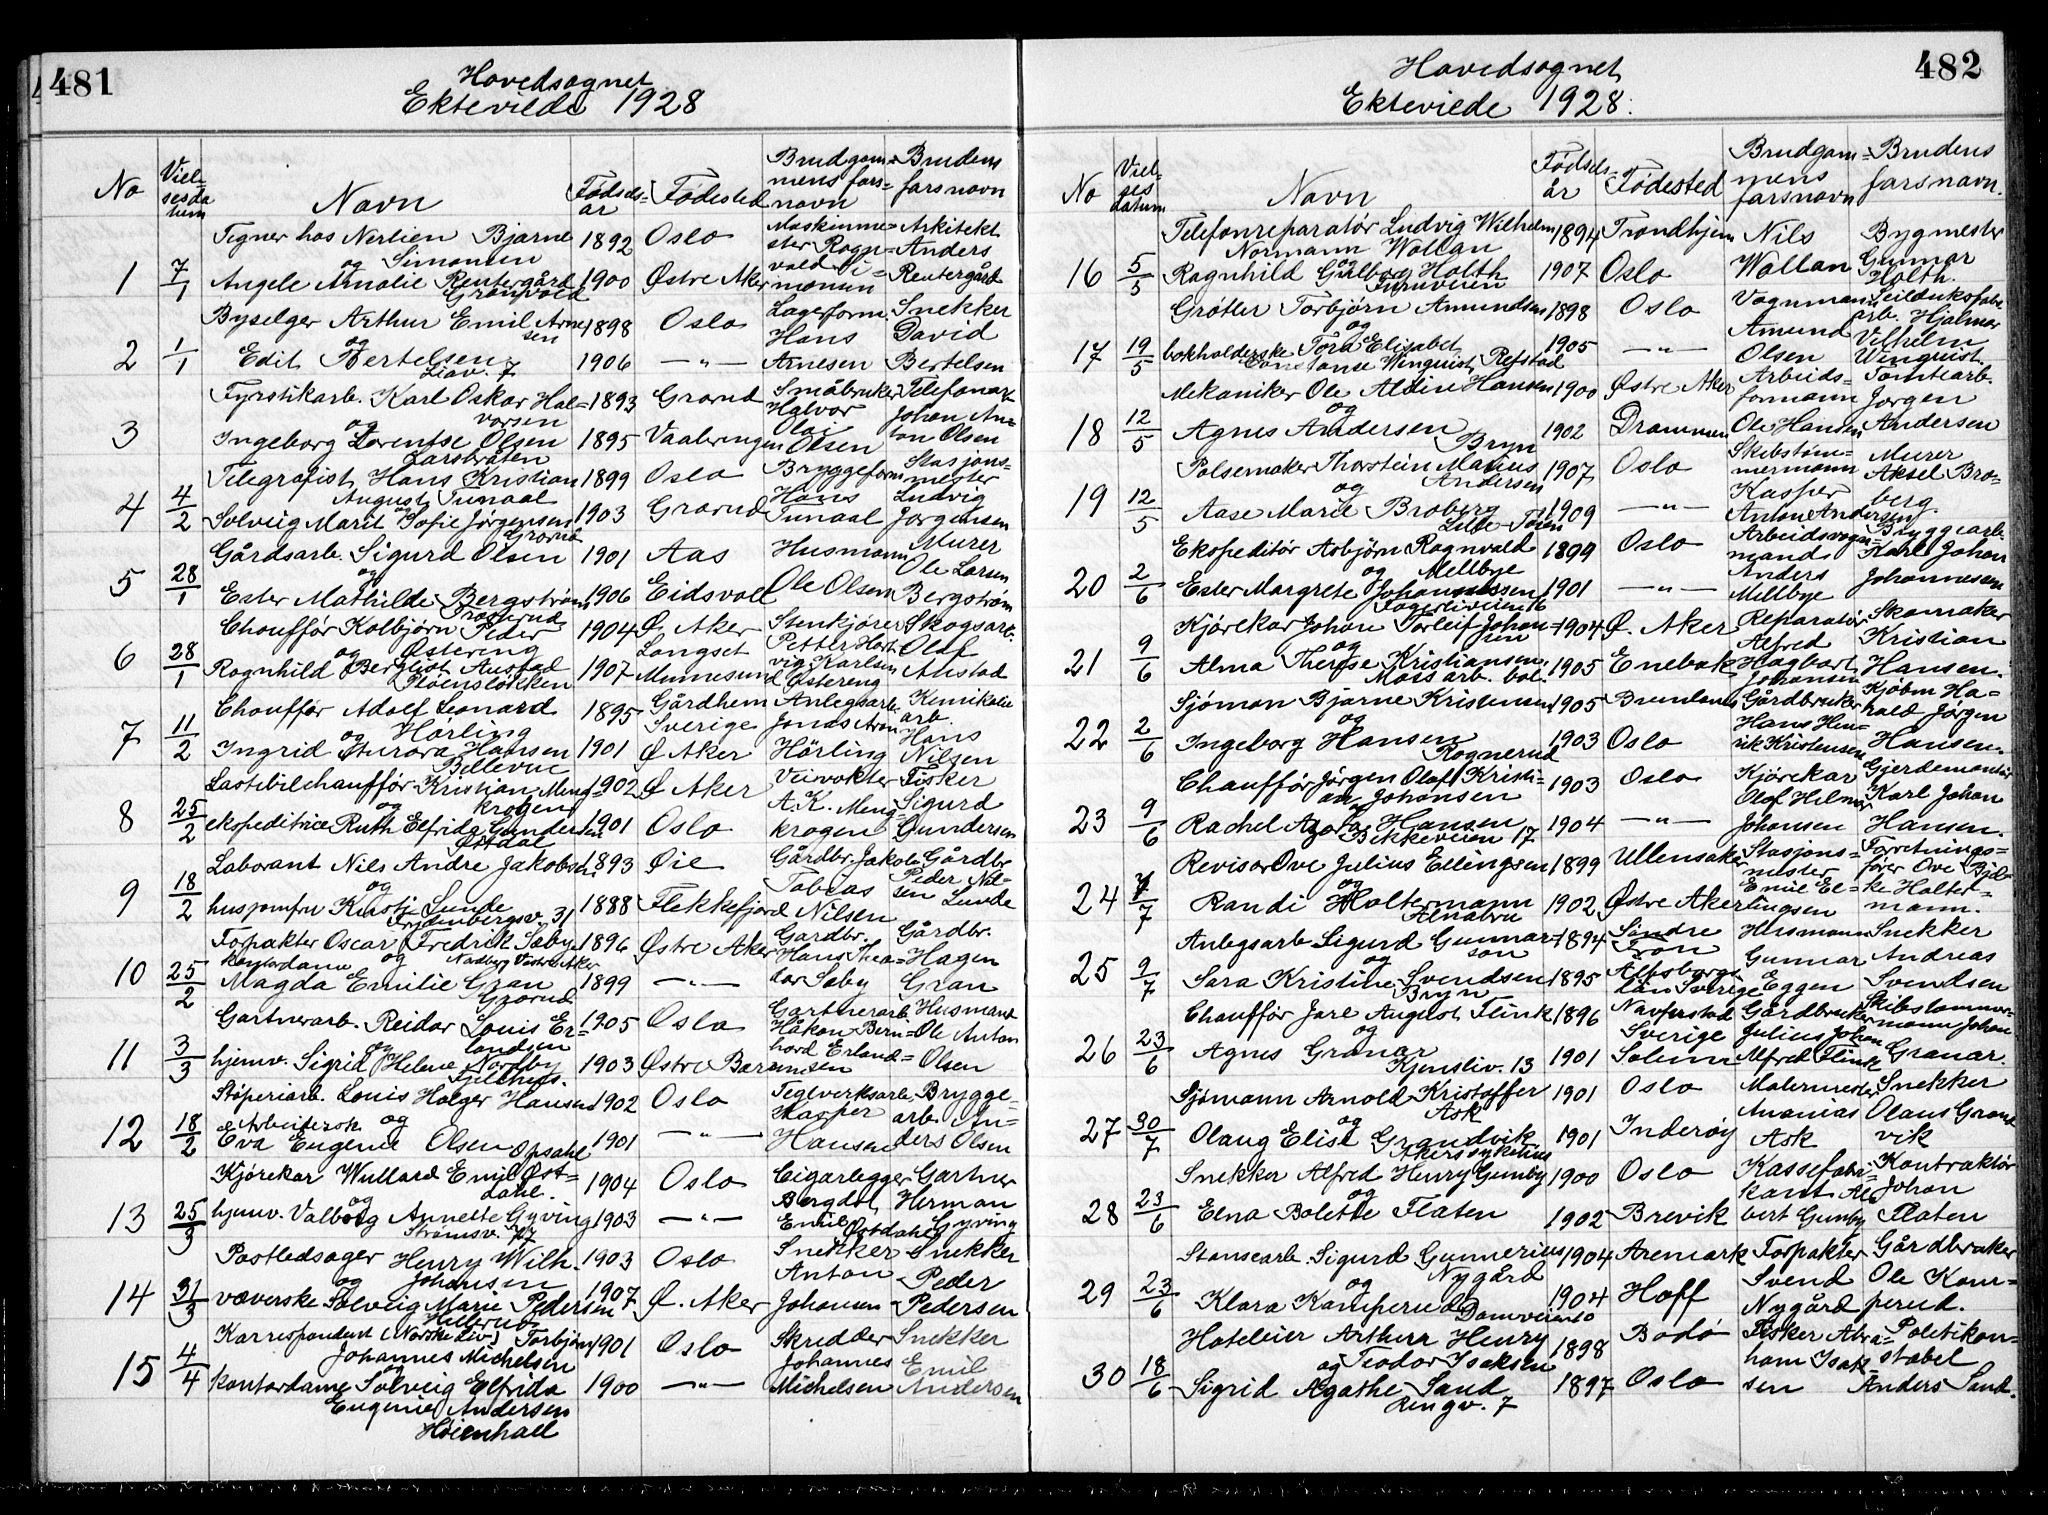 481
Hovedsognet
Ektevilde 1928
No
Vielsesdatum
Navn
Fødselsår
Fødested
Brudgommens farsnavn
Brudens farsnavn
1 7/1
Tegner hos Nertien Bjarne Simonsen 1892 Oslo Maskinmester Ragnvald Simonsen Arkitekt Anders Reutergård
og
Angele Amalie Reutergård 1900 Østre Aker
Grønvold
2 1/1
Byselger Arthur Emil Arnesen 1898 Oslo Lagerform. Hans Arnesen Snekker David Bertelsen
og
Edit Bertelsen 1906 —"—
Liav. 7
3
Fyrstikarb. Karl Oskar Halvorsen 1893 Grorud Småbruker Halvor Olai Olsen Telefonarb. Johan Anton Olsen
og
Ingeborg Lorentse Olsen 1895 Vaaleringen
Larsbråten
4 4/2
Telegrafist Hans Kristian August Tunaal 1899 Oslo Bryggeform Hans Tunaal Stasjonsmester Ludvig Jørgensen
og
Solveig Marit Sofie Jørgensen 1903 Grorud
Grorud
5 28/1
Gårdsarb. Sigurd Olsen 1901 Aas Husmann Ole Olsen Murer Ole Larsen Bergstrøm
og
Ester Mathilde Bergstrøm 1906 Eidsvoll
Trosterud
6 28/1
Chouffør Kolbjørn Peder Østereng 1904 Ø. Aker Stenkjører Petter Hartvig Karlsen Østereng Skogsarb. Olaf Austad
og
Ragnhild Bergliot Austad 1907 Langset Minnesund
Pløensløkken
7 11/2
Chouffør Adolf Leonard Hörling 1895 Gårdhem Sverige Anlegsarb. Jonas Aron Hörling Kemikaliearb. Hans Nilsen
og
Ingrid Aurora Hansen 1901 Ø Aker
Bellevue
8 25/2
Lastebilchauffør Kristian Mengkrogen 1902 Ø Aker Veivokter A.K. Mengkrogen Fisker Sigurd Gundersen
og
ekspeditrice Ruth Elfrida Gundersen 1901 Oslo
Østdal
9 18/2
Laborant Nils Andre Jakobsen 1893 Øie Gårdbr. Jakob Tobias Nilsen Gårdbr Peder Nilsen Lunde
og
husjomfru Kirsti Lunde 1888 Flekkefjord
Frydenbergsv. 31
10 25/2
Forpakter Oscar Fredrik Saby 1896 Østre Aker Gardbr. Hans Theodor Saby Gårdbr. Hagen Gran
kontordame og Nordberg Vestre Aker
Magda Emilie Gran 1899 —"—
Grorud
11 3/3
Gartnerarb. Reidar Louis Erlandsen 1905 Oslo Gartnerarb Håkon Bernhard Erlandsen Husmand Ole Anton Olsen
og
hjemv. Sigrid Helene Nordby 1903 Østre Barum
Tjelthus.
12 18/2
Støperiarb. Louis Holger Hansen 1902 Oslo Teglverksarb. Kasper Hansen Bryggearb. Anders Olsen
Arbeidersk og
Eva Eugenie Olsen 1901 —"—
Opsahl
13 25/3
Kjørekar Willard Emil Østdahl. 1904 Oslo Cigarlegger Bergdal, Emil Østdahl Gartner Herman Gyving
og
hjemv. Valborg Annette Gyving 1903 —"—
Strømsv. 77
14 31/3
Postledsager Henry Wilh. Johansen 1903 Oslo Snekker Anton Johansen Snekker Peder Pedersen
og
væverske Solveig Marie Pedersen 1907 Ø. Aker
Hellerud
15 4/4
Korrespondent (Norske Liv) Torbjørn Johannes Michelsen 1901 Oslo Skredder Johannes Michelsen Snekker Emil Andersen
og
kontordame Solveig Elfrida Eugenie Andersen 1900 —"—
Høienhall
482
Hovedsognet
Ektevilde 1928.
No
Vielsesdatum
Navn
Fødselsår
Fødested
Brudgommens farsnavn
Brudens farsnavn.
16 5/5
Telefonreparatør Ludvig Wilhelm Normann Wollan 1894 Trondhjem Nils Wollan Bygmester Gunnar Holth.
og
Ragnhild Gulborg Holth 1907 Oslo
17 19/5
Grøtler Torbjørn Amundsen 1898 Oslo Vognmann Amund Olsen Seilduksfabr. arb. Hjalmar Vilhelm Winquist
og
bokholderske Tora Elisabet Constanse Winquist 1905 —"—
Refstad
18 12/5
Mekaniker Ole Aldin Hansen 1900 Østre Aker Arbeidsformann Ole Hansen Tomtearb. Jørgen Andersen
og
Agnes Andersen 1902 Drammen
Bryn
19 12/5
Polsemaker Thorstein Marius Andersen 1907 Oslo Skibstømmermann Kasper Anton Andersen Murer Aksel Broberg.
og
Aase Marie Broberg 1909 —"—
Lille Tøien
20 2/6
Ekspeditør Asbjørn Ragnvald Mellbye 1899 Oslo Arbeidsvognmand Anders Mellbye Bryggearb. Karl Johan Johannessen
og
Ester Margrete Johannessen 1901 —"—
Fagerliveien 16
21 9/6
Kjørekar Johan Torleif Johansen 1904 Ø. Aker Reparatør Alfred Hagbart Johansen Skomaker Kristian Hansen.
og
Alma Therese Kristiansen 1905 Enebak
Moss arb. bol.
22 2/6
Sjøman Bjarne Kristensen 1905 Brunlanes Gårdbruker Hans Henrik Kristensen Kjøbm Harald Jørgen Hansen.
og
Ingeborg Hansen 1903 Oslo
Rognerud
23 9/6
Chauffør Jørgen Olaf Kristian Johansen 1903 Oslo Kjørekar Olaf Hilmar Johansen Gjerdemontør Karl Johan Hansen.
og
Rachel Agota Hansen 1904 —"—
Bekkeveien 17
24 7/7
Revisor Ove Julius Ellingsen 1899 Ullensaker Stasjonsmester Emil Ellingsen Forretningsfører Ove Bjelke Haltermann.
og
Randi Holtermann 1902 Østre Aker
Alnabru
25 9/7
Anlegsarb Sigurd Gunnarson 1894 Søndre Tron Husmann Gunnar Eggen Snekker Andreas Svendsen
og
Sara Kristine Svendsen 1895 Alfsborgs län Sverige
Bryn
26 23/6
Chauffør Jarl August Flink 1896 Naverstad Sverige Gårdbruker Julius Johan Alfred Flink Skibstømmermann Johan Granar.
og
Agnes Granar 1901 Solum
Kjensliv. 13
27 30/7
Sjømann Arnold Kristoffer Ask 1901 Oslo Malermester Ananias Ask Snekker Olaus Grandvik
og
Olaug Elise Grandvik 1901 Inderøy
Akerssykehus
28 23/6
Snekker Alfred Henry Gumby 1900 Oslo Kassefabrikant Albert Gumby Kontraktør Johan Flaten
og
Elna Bolette Flaten 1902 Brevik
29 23/6
Stansearb. Sigurd Gunnerius Nygård 1904 Aremark Forpakter Svend Nygård Gårdbruker Ole Kamperud.
og
Klara Kamperud 1904 Hoff
30 18/6
Hoteleier Arthur Henry Teodor Isaksen 1898 Bodø Fisker Abraham Isaksen Politikonstabel Anders Sand.
og
Sigrid Agathe Sand 1897 Oslo
Ringv. 7